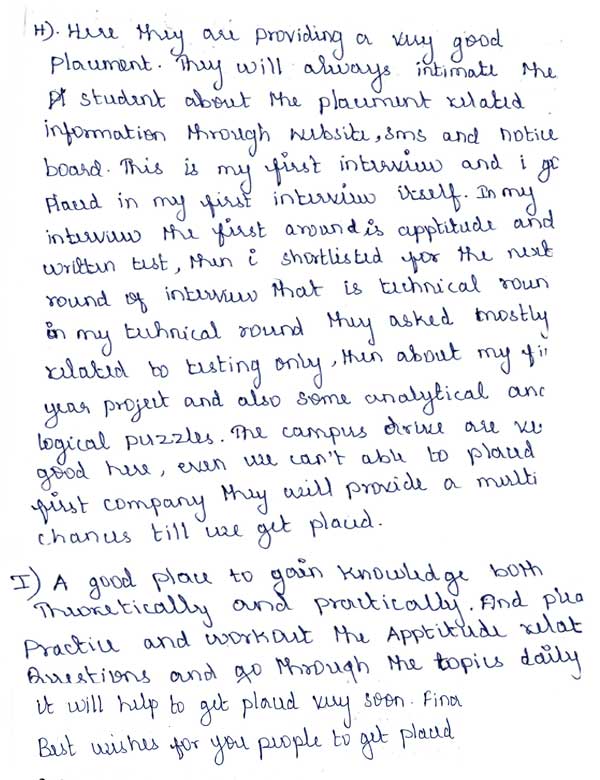 H). Here they are providing a very good
Placement. They will always intimate the
student about the placement related
information through website, sms and notice
board. This is my first interview and i go
Placed in my first interview itself. In my
interview the first around is apptitude and
written test, then i shortlisted for the next
round of interview that is technical roun
in my technical round they asked mostly
related to testing only, then about my fi
year project and also some analytical and
logical puzzles. The campus drive are ve
good here, even we can't able to placed
first company they will provide a multi
chances till we get placed.
I) A good place to gain knowledge both
Theoretically and practically. And plea
Practice and workout the Apptitude relat
Questions and go through the topics daily
it will help to get placed very soon. Fina
Best wishes for you people to get placed